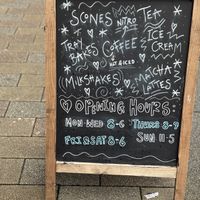 SCONES NITRO TEA
TRAY BAKES COFFEE ICE CREAM
HOT & ICED
MILKSHAKES MATCHA LATTES
OPENING HOURS:
MON-WED 8-6 THURS 8-9
FRI&SAT 8-6 SUN 11-5